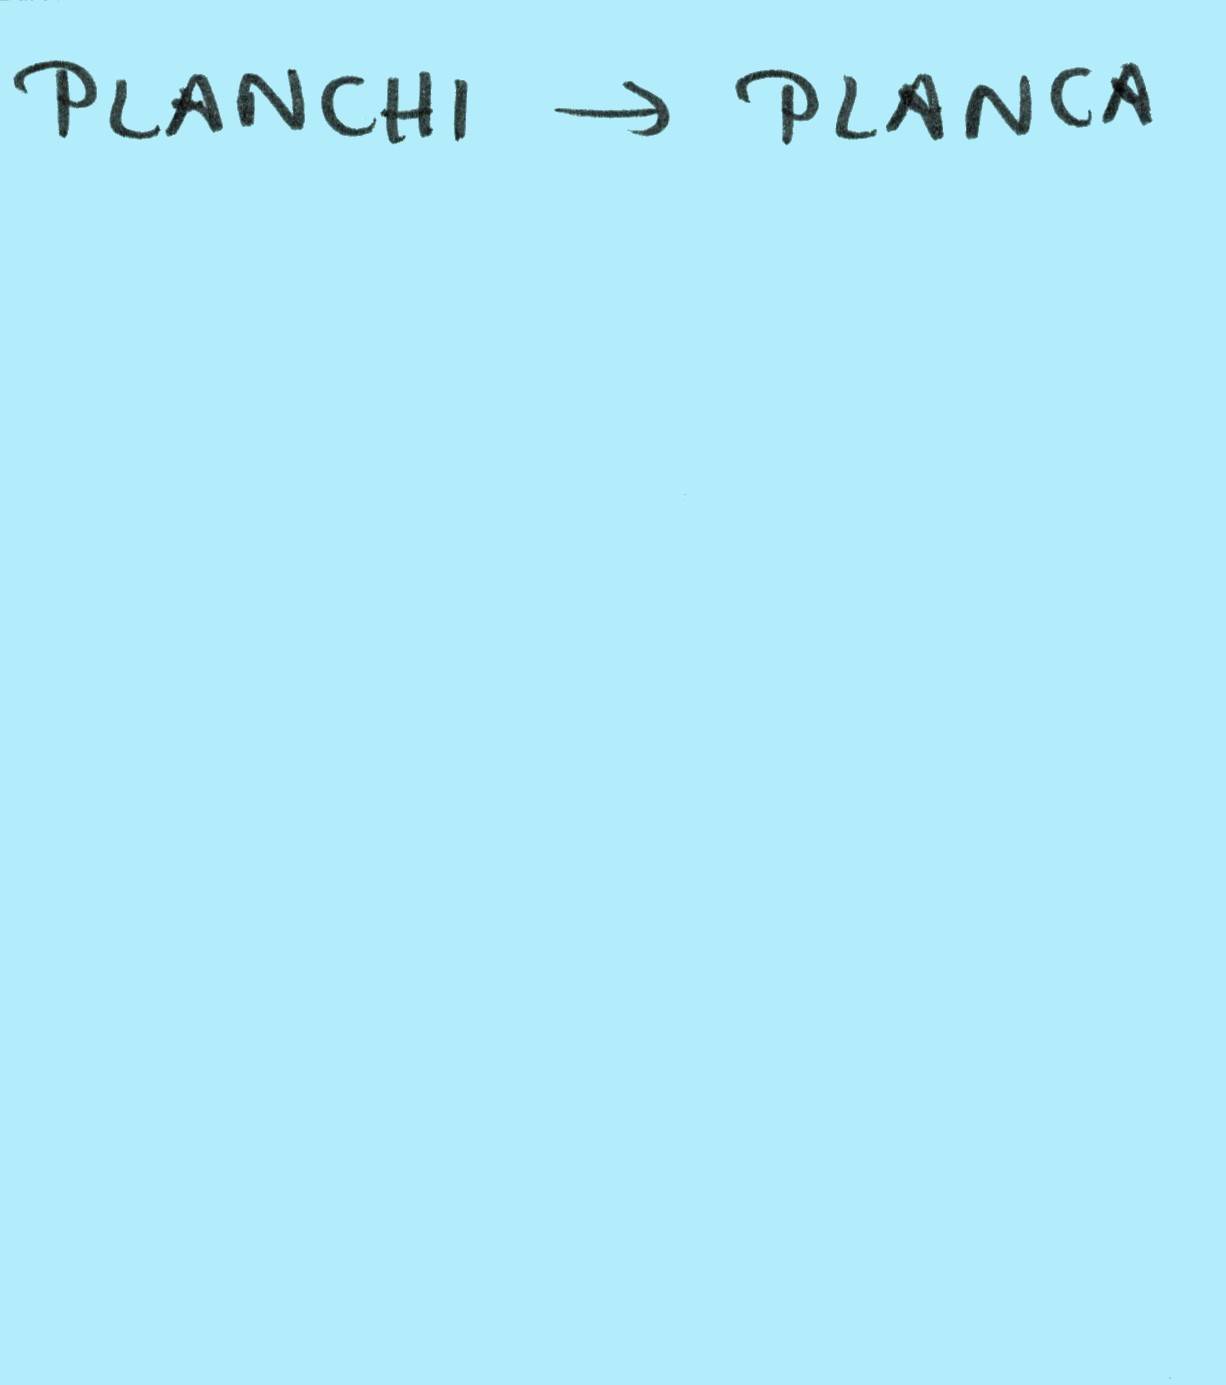 PLANCHI → PLANCA